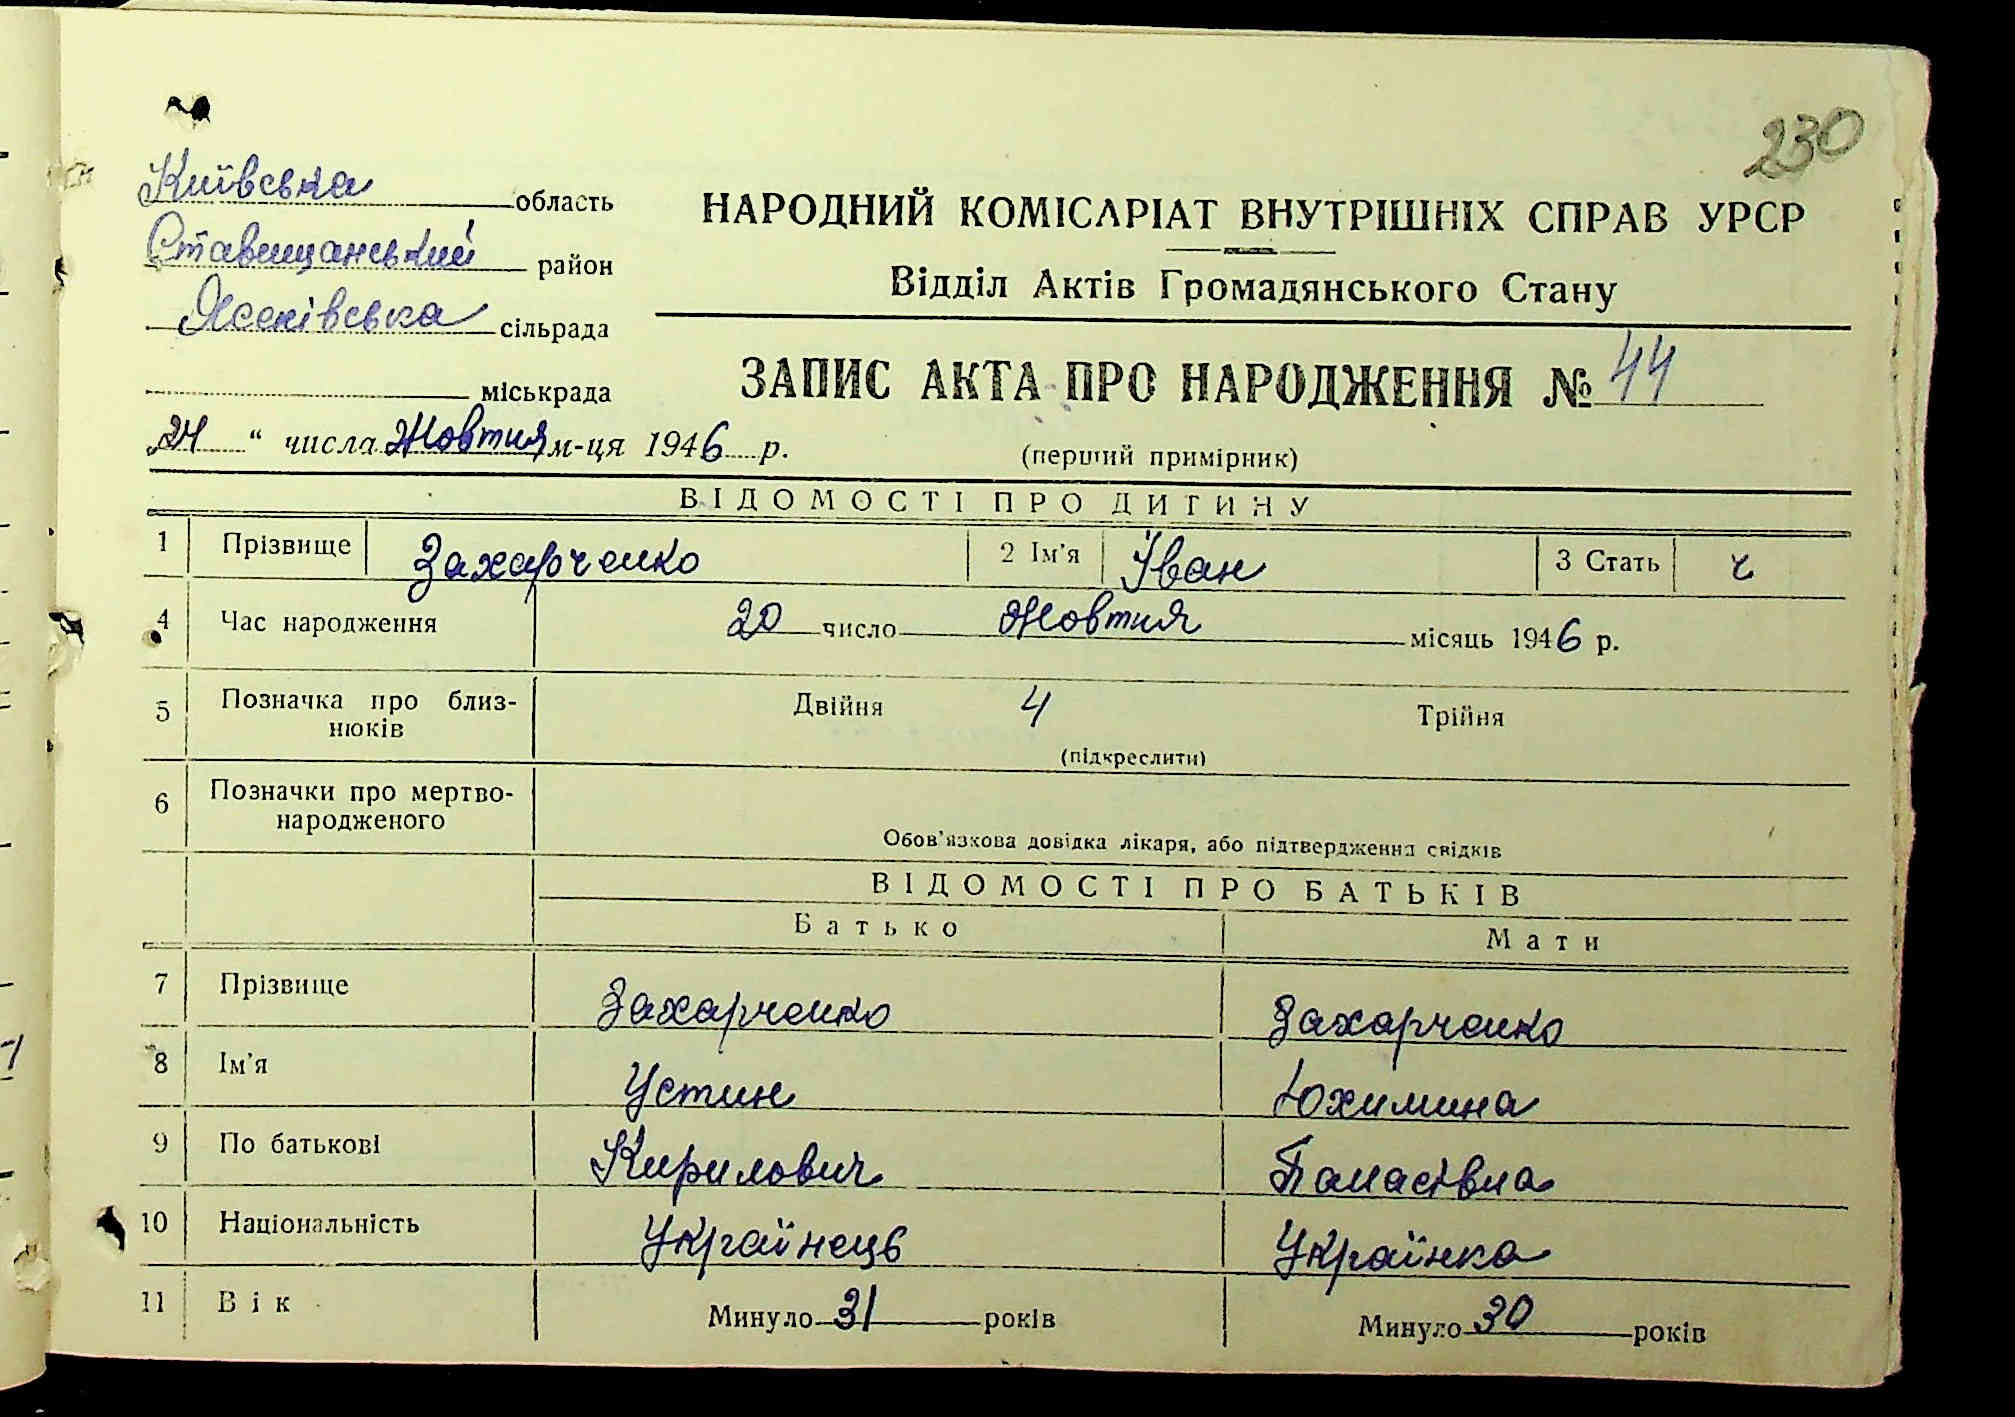 230
Київська область
Ставищанський район
Ясенівська сільрада
міськрада
НАРОДНИЙ КОМІСАРІАТ ВНУТРІШНІХ СПРАВ УРСР
Відділ Актів Громадянського Стану
ЗАПИС АКТА ПРО НАРОДЖЕННЯ № 44
„24“ числа Жовтня м-ця 1946 р.
(перший примірник)
ВІДОМОСТІ ПРО ДИТИНУ
1 Прізвище Захарченко 2 Ім'я Іван 3 Стать ч
4 Час народження 20 число Жовтня місяць 1946 р.
5 Позначка про близ-
нюків
Двійня 4 Трійня
(підкреслити)
6 Позначки про мертво-
народженого
Обов'язкова довідка лікаря, або підтвердження свідків
ВІДОМОСТІ ПРО БАТЬКІВ
Батько Мати
7 Прізвище Захарченко Захарченко
8 Ім'я Устин Юхимина
9 По батькові Кирилович Панасівна
10 Національність Українець Українка
11 Вік Минуло 31 років Минуло 30 років